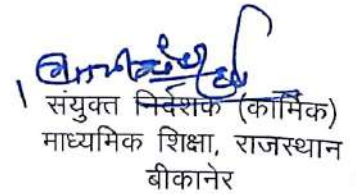 संयुक्त निर्देशक (कार्मिक)
माध्यमिक शिक्षा, राजस्थान
बीकानेर